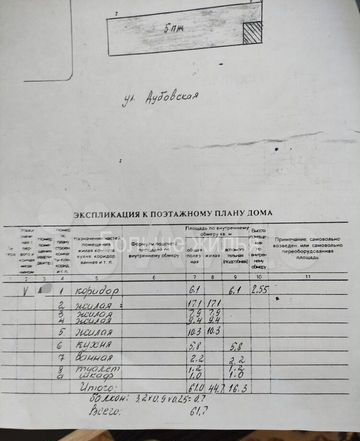 5 ПЖ
ул. Дубовская
ЭКСПЛИКАЦИЯ К ПОЭТАЖНОМУ ПЛАНУ ДОМА
Площадь по внутреннему обмеру кв. м
Примечание: самовольно возведен или самовольно переоборудованная площадь
Назначение части помещения: жилая комната, кухня, коридор, ванная и т. п.
Формулы подсчета площади по внутреннему обмеру
2 3 4 5 6 7 8 9 10 11
V 1 коридор 6.1 6.1 2.55
2 жилая 17.1 17.1
3 жилая 7.9 7.9
4 жилая 9.4 9.4
5 жилая 10.3 10.3
6 кухня 5.8 5.8
7 ванная 2.2 2.2
8 туалет 1.2 1.2
9 шкаф 1.0 1.0
Итого: 61.0 44.7 16.3
балкон: 3.2x0.9x0.25=0.7
Всего: 61.7